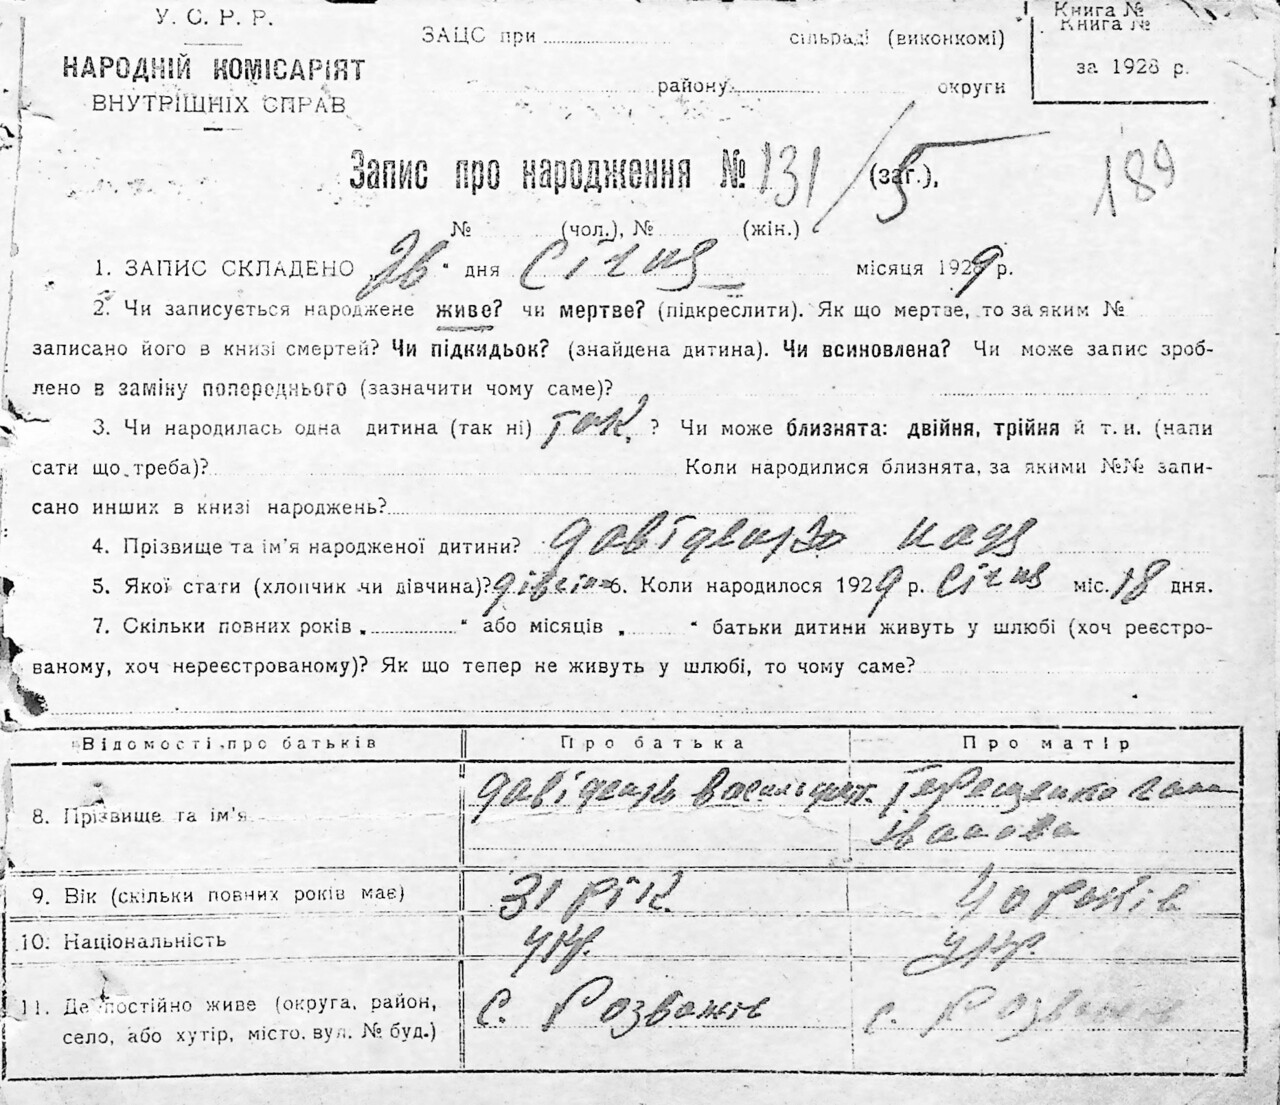 У. С. Р. Р.
НАРОДНІЙ КОМІСАРІЯТ
ВНУТРІШНІХ СПРАВ
ЗАЦС при сільраді (виконкомі)
району округи
Книга №
Книга №
за 1928 р.
Запис про народження № 131/5 (заг.),
189
№ (чол.), № (жін.)
1. ЗАПИС СКЛАДЕНО 26 " дня Січня місяця 1929 р.
2. Чи записується народжене живе? чи мертве? (підкреслити). Як що мертве, то за яким №
записано його в книзі смертей? Чи підкидьок? (знайдена дитина). Чи всиновлена? Чи може запис зроб-
лено в заміну попереднього (зазначити чому саме)?
3. Чи народилась одна дитина (так ні) так. ? Чи може близнята: двійня, трійня й т. и. (напи
сати що треба)? Коли народилися близнята, за якими №№ запи-
сано инших в книзі народжень?
4. Прізвище та ім'я народженої дитини? Давіденко Надя
5. Якої стати (хлопчик чи дівчина)? 6. Коли народилося 1929 р. Січня міс. 18 дня.
7. Скільки повних років „ " або місяців „ " батьки дитини живуть у шлюбі (хоч реєстро-
ваному, хоч нереєстрованому)? Як що тепер не живуть у шлюбі, то чому саме?
Відомості про батьків Про батька Про матір
8. Прізвище та ім'я Давіденко Василь Терещенко Гана
Іванова
9. Вік (скільки повних років має) 31 рік. 40 років
10. Національність укр. укр.
11. Де постійно живе (округа, район, с. Розважів с. Розважів
село, або хутір, місто, вул. № буд.)